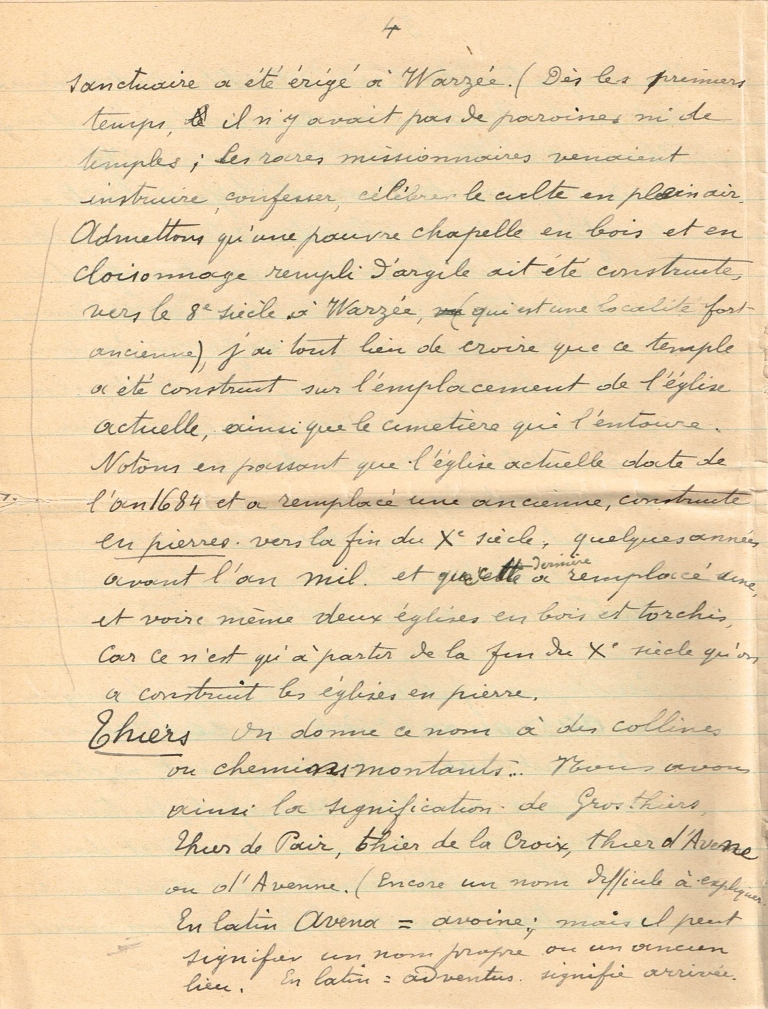 4
sanctuaire a été érigé à Warzée. (Dès les premiers
temps, il n'y avait pas de paroisses ni de
temples ; les rares missionnaires venaient
instruire, confesser, célébrer le culte en plein air.
Admettons qu'une pauvre chapelle en bois et en
cloisonnage rempli d'argile ait été construite,
vers le 8e siècle à Warzée, (qui est une localité fort
ancienne), j'ai tout lieu de croire que ce temple
a été construit sur l'emplacement de l'église
actuelle, ainsi que le cimetière qui l'entoure.
Notons en passant que l'église actuelle date de
l'an 1684 et a remplacé une ancienne, construite
en pierres vers la fin du Xe siècle, quelques années
avant l'an mil. et que cette dernière a remplacé une,
et voire même deux églises en bois et torchis,
car ce n'est qu'à partir de la fin du Xe siècle qu'on
a construit les églises en pierre.
Thiers On donne ce nom à des collines
ou chemins montants... Nous avons
ainsi la signification de Gros thiers,
Thier de Pair, thier de la Croix, thier d'Avenne
ou d'Avenne. (Encore un nom difficile à expliquer.
En latin Avena = avoine ; mais il peut
signifier un nom propre ou un ancien
lieu. En latin = adventus signifie arrivée.